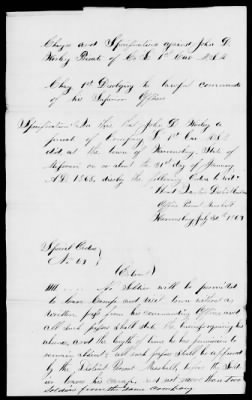 Charges and Specifications against John D.
Worley Private of Co L 1st Cav. M.S.M
Charge 1st Disobeying the lawful commands
of his Superior Officer
Specification In this that John D. Worley a
private of Company L 1st Cav M.S.M
did, at the town of Warrensburg State of
Missouri on or about the 31st day of January
A.D. 1865, disobey the following Orders to wit
Head Quarters
Office Provost Marshal
Warrensburg, July 30th 186
Special Orders
No
(Extract)
No Soldier will be permitted
to leave Camp and visit town without a
written pass from his commanding Officer and
all such passes shall state the
absence and the length of time he has permission to
remain absent; all such passes shall be approved
by the District Provost Marshal, before the Sold-
ier leaves his camp, and not more than two
Soldiers from the same company